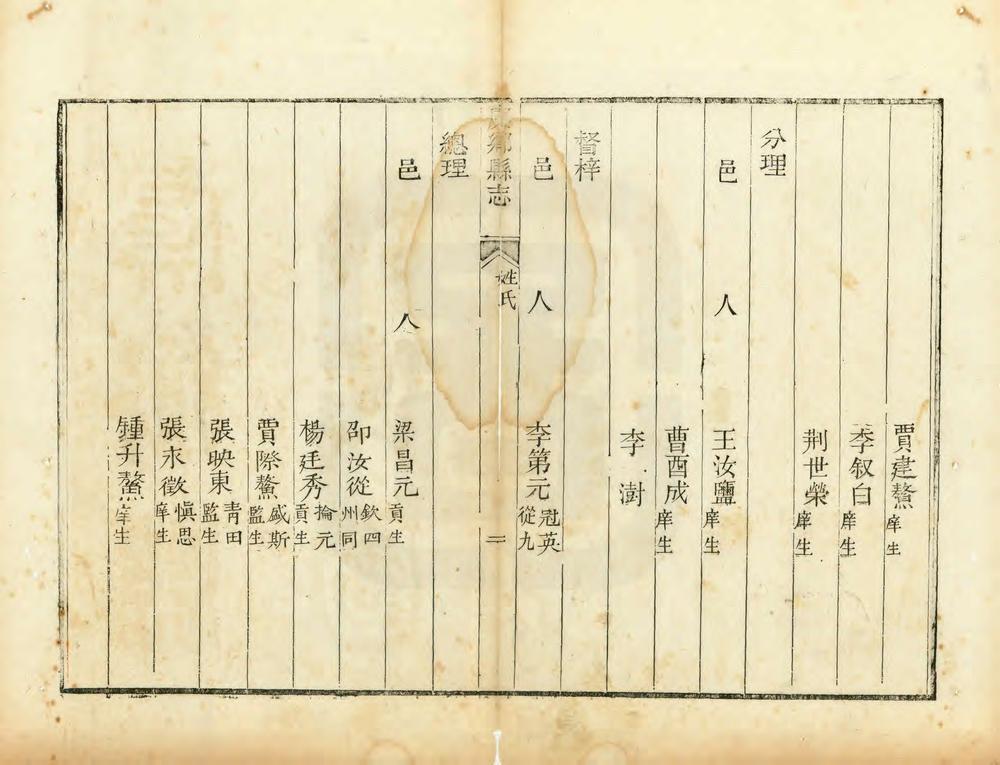 賈建鰲庠生
李叙白庠生
荆世榮庠生
分理
邑人王汝鹽庠生
曹酉成庠生
李澍
督梓
邑人李第元冠英從九
鄉縣志 姓氏 二
總理
邑人梁昌元貢生
邵汝從欽四州同
楊廷秀掄元貢生
賈際鰲盛斯監生
張映東青田監生
張永徵愼思庠生
鍾升鰲庠生